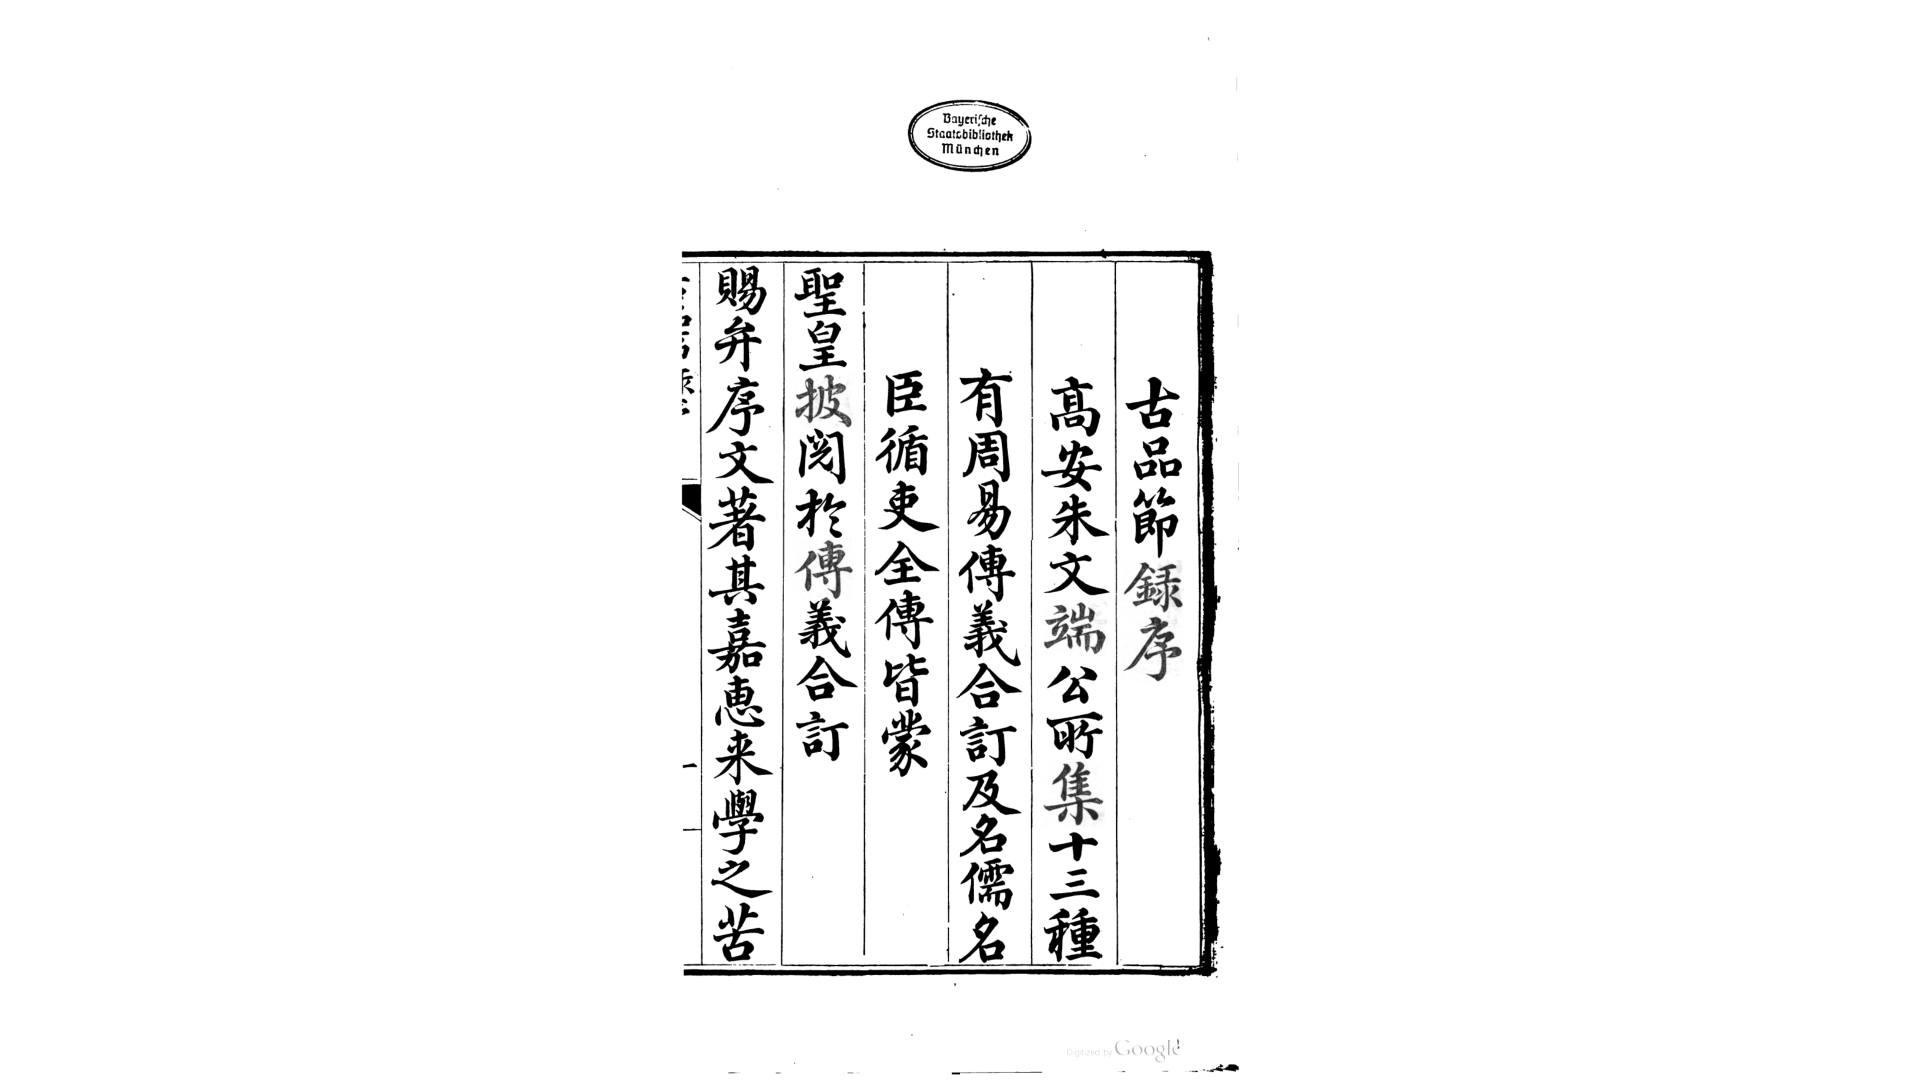 Bayerische
Staatsbibliothek
München
古品節錄序
高安朱文端公所集十三種
有周易傳義合訂及名儒名
臣循吏全傳皆蒙
聖皇披閱於傳義合訂
賜弁序文著其嘉惠来學之苦
Digitized by Google